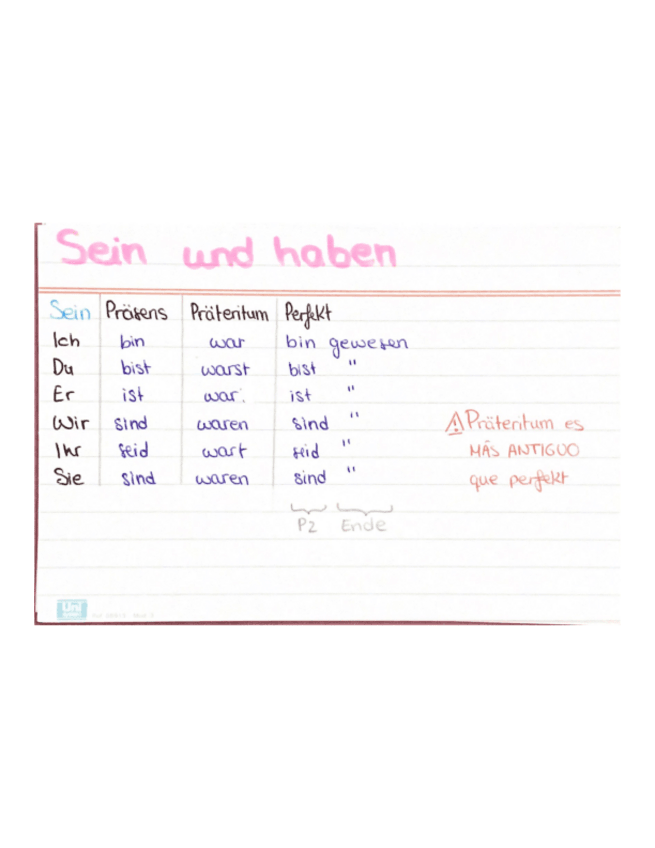 Sein und haben
Sein Präsens Präteritum Perfekt
Ich bin war bin gewesen
Du bist warst bist "
Er ist war. ist "
Wir sind waren sind "
Ihr seid wart seid "
Sie sind waren sind "
⚠ Präteritum es
MÁS ANTIGUO
que perfekt
P2 Ende
Uni